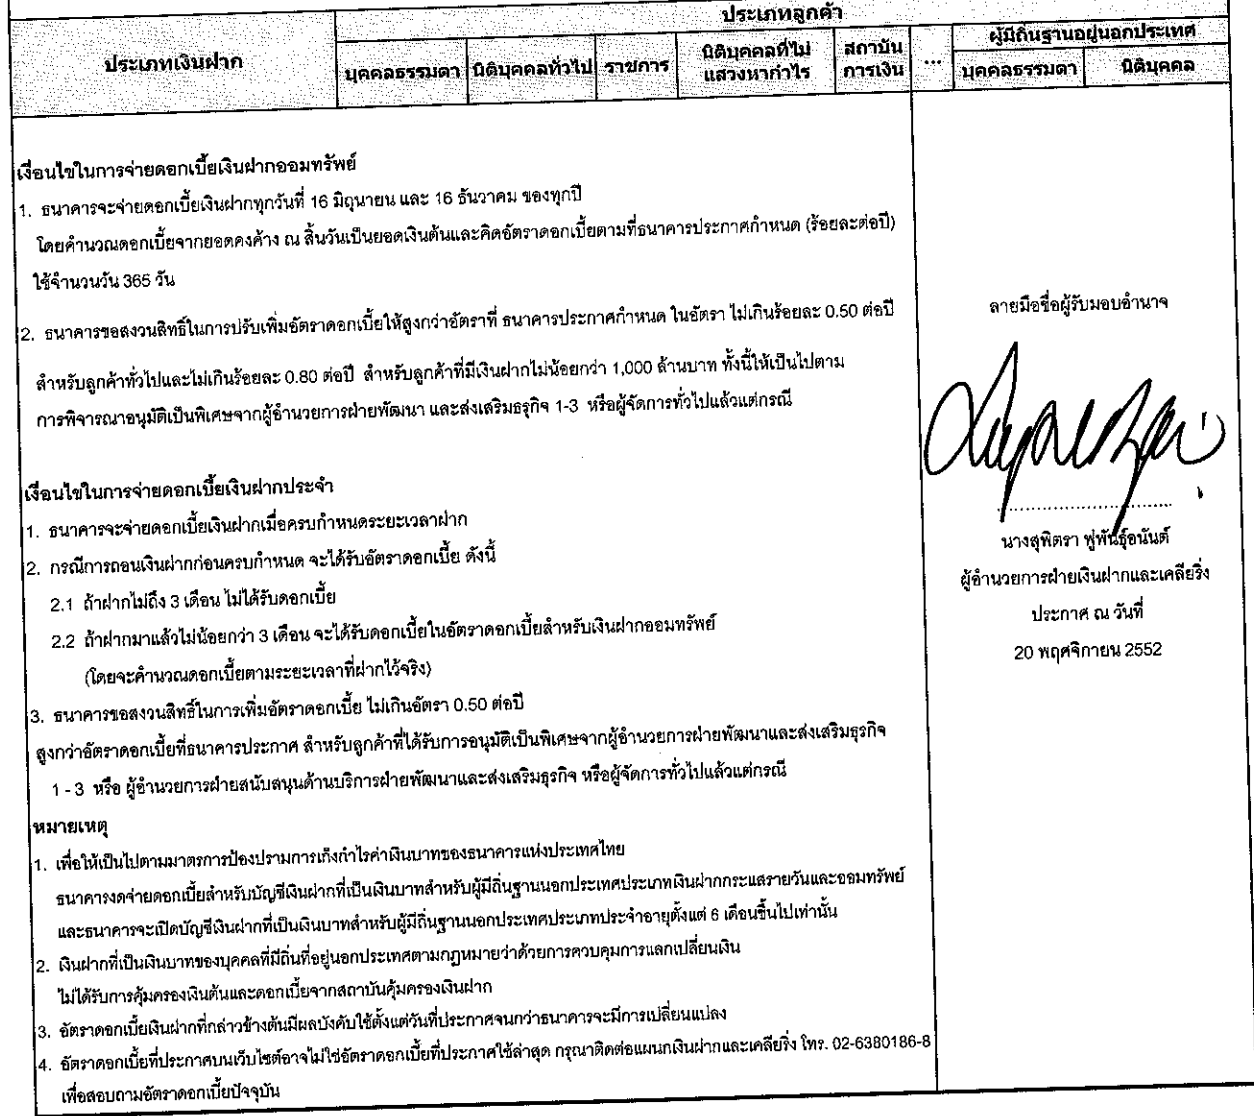 ประเภทเงินฝาก
ประเภทลูกค้า
บุคคลธรรมดา
นิติบุคคลทั่วไป
ราชการ
นิติบุคคลที่ไม่
แสวงหากำไร
สถาบัน
การเงิน
...
ผู้มีถิ่นฐานอยู่นอกประเทศ
บุคคลธรรมดา
นิติบุคคล
เงื่อนไขในการจ่ายดอกเบี้ยเงินฝากออมทรัพย์
1. ธนาคารจะจ่ายดอกเบี้ยเงินฝากทุกวันที่ 16 มิถุนายน และ 16 ธันวาคม ของทุกปี
โดยคำนวณดอกเบี้ยจากยอดคงค้าง ณ สิ้นวันเป็นยอดเงินต้นและคิดอัตราดอกเบี้ยตามที่ธนาคารประกาศกำหนด (ร้อยละต่อปี)
ใช้จำนวนวัน 365 วัน
2. ธนาคารขอสงวนสิทธิ์ในการปรับเพิ่มอัตราดอกเบี้ยให้สูงกว่าอัตราที่ ธนาคารประกาศกำหนด ในอัตรา ไม่เกินร้อยละ 0.50 ต่อปี
สำหรับลูกค้าทั่วไปและไม่เกินร้อยละ 0.80 ต่อปี สำหรับลูกค้าที่มีเงินฝากไม่น้อยกว่า 1,000 ล้านบาท ทั้งนี้ให้เป็นไปตาม
การพิจารณาอนุมัติเป็นพิเศษจากผู้อำนวยการฝ่ายพัฒนา และส่งเสริมธุรกิจ 1-3 หรือผู้จัดการทั่วไปแล้วแต่กรณี
เงื่อนไขในการจ่ายดอกเบี้ยเงินฝากประจำ
1. ธนาคารจะจ่ายดอกเบี้ยเงินฝากเมื่อครบกำหนดระยะเวลาฝาก
2. กรณีการถอนเงินฝากก่อนครบกำหนด จะได้รับอัตราดอกเบี้ย ดังนี้
2.1 ถ้าฝากไม่ถึง 3 เดือน ไม่ได้รับดอกเบี้ย
2.2 ถ้าฝากมาแล้วไม่น้อยกว่า 3 เดือน จะได้รับดอกเบี้ยในอัตราดอกเบี้ยสำหรับเงินฝากออมทรัพย์
(โดยจะคำนวณดอกเบี้ยตามระยะเวลาที่ฝากไว้จริง)
3. ธนาคารขอสงวนสิทธิ์ในการเพิ่มอัตราดอกเบี้ย ไม่เกินอัตรา 0.50 ต่อปี
สูงกว่าอัตราดอกเบี้ยที่ธนาคารประกาศ สำหรับลูกค้าที่ได้รับการอนุมัติเป็นพิเศษจากผู้อำนวยการฝ่ายพัฒนาและส่งเสริมธุรกิจ
1 - 3 หรือ ผู้อำนวยการฝ่ายสนับสนุนด้านบริการฝ่ายพัฒนาและส่งเสริมธุรกิจ หรือผู้จัดการทั่วไปแล้วแต่กรณี
หมายเหตุ
1. เพื่อให้เป็นไปตามมาตรการป้องปรามการเก็งกำไรค่าเงินบาทของธนาคารแห่งประเทศไทย
ธนาคารงดจ่ายดอกเบี้ยสำหรับบัญชีเงินฝากที่เป็นเงินบาทสำหรับผู้มีถิ่นฐานนอกประเทศประเภทเงินฝากกระแสรายวันและออมทรัพย์
และธนาคารจะเปิดบัญชีเงินฝากที่เป็นเงินบาทสำหรับผู้มีถิ่นฐานนอกประเทศประเภทประจำอายุตั้งแต่ 6 เดือนขึ้นไปเท่านั้น
2. เงินฝากที่เป็นเงินบาทของบุคคลที่มีถิ่นที่อยู่นอกประเทศตามกฎหมายว่าด้วยการควบคุมการแลกเปลี่ยนเงิน
ไม่ได้รับการคุ้มครองเงินต้นและดอกเบี้ยจากสถาบันคุ้มครองเงินฝาก
3. อัตราดอกเบี้ยเงินฝากที่กล่าวข้างต้นมีผลบังคับใช้ตั้งแต่วันที่ประกาศจนกว่าธนาคารจะมีการเปลี่ยนแปลง
4. อัตราดอกเบี้ยที่ประกาศบนเว็บไซต์อาจไม่ใช่อัตราดอกเบี้ยที่ประกาศใช้ล่าสุด กรุณาติดต่อแผนกเงินฝากและเคลียริ่ง โทร. 02-6380186-8
เพื่อสอบถามอัตราดอกเบี้ยปัจจุบัน
ลายมือชื่อผู้รับมอบอำนาจ
นางสุพิตรา ฟูพันธุ์อนันต์
ผู้อำนวยการฝ่ายเงินฝากและเคลียริ่ง
ประกาศ ณ วันที่
20 พฤศจิกายน 2552